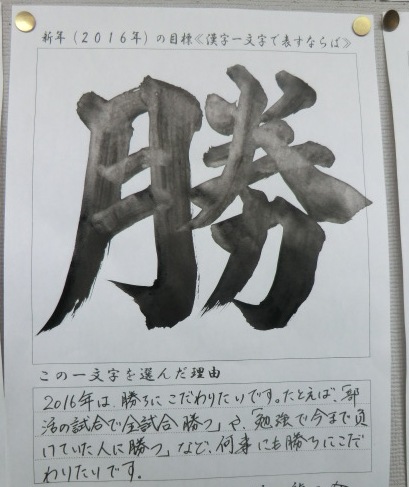 新年（2016年）の目標≪漢字一文字で表すならば≫
勝
この一文字を選んだ理由
2016年は、勝ちにこだわりたいです。たとえば、「部
活の試合で全試合勝つ」や、「勉強で今まで負
けていた人に勝つ」など、何事にも勝ちにこだ
わりたいです。